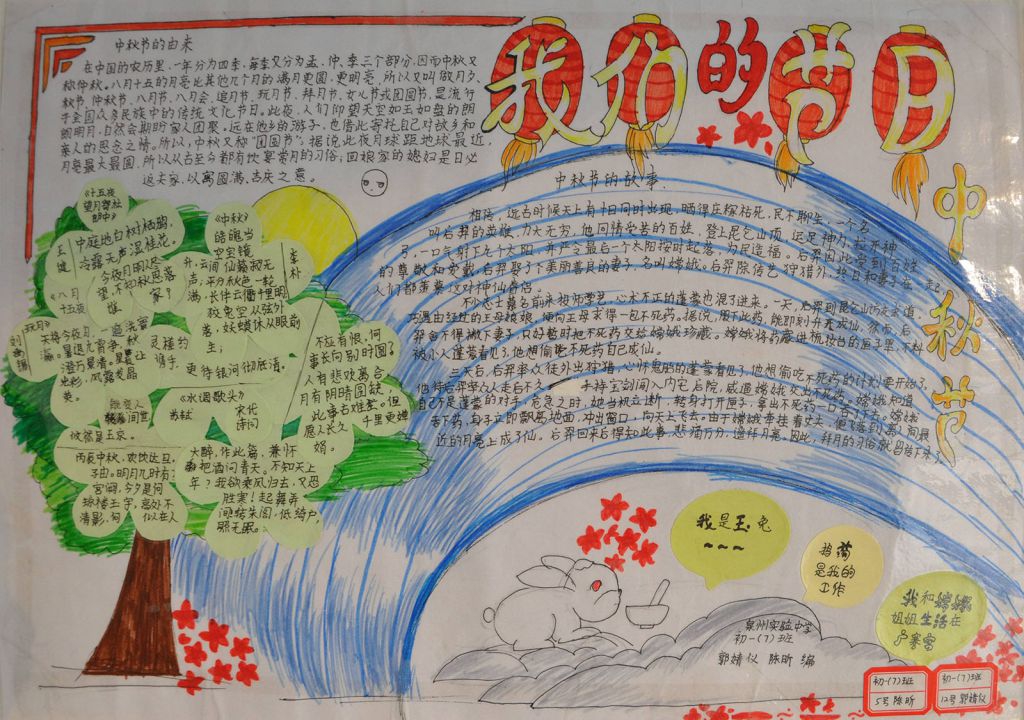 我们的节日
中秋节
中秋节的由来
在中国的农历里,一年分为四季,每季又分为孟、仲、季三个部分,因而中秋又
称仲秋。八月十五的月亮比其他几个月的满月更圆,更明亮,所以又叫做月夕、
秋节、仲秋节、八月节、八月会、追月节、玩月节、拜月节、女儿节或团圆节,是流行
于全国众多民族中的传统文化节日。此夜,人们仰望天空如玉如盘的朗
朗明月,自然会期盼家人团聚。远在他乡的游子,也借此寄托自己对故乡和
亲人的思念之情。所以,中秋又称“团圆节”。据说此夜月球距地球最近,
月亮最大最圆,所以从古至今都有饮宴赏月的习俗;回娘家的媳妇是日必
返夫家,以寓圆满、吉庆之意。
中秋节的故事
相传,远古时候天上有十日同时出现,晒得庄稼枯死,民不聊生,一个名
叫后羿的英雄,力大无穷,他同情受苦的百姓,登上昆仑山顶,运足神力,拉开神
弓,一口气射下九个太阳,并严令最后一个太阳按时起落,为民造福。后羿因此受到百姓
的尊敬和爱戴,后羿娶了个美丽善良的妻子,名叫嫦娥。后羿除传艺狩猎外,终日和妻子在一起,
人们都羡慕这对
不少志士慕名前来投师学艺,心术不正的蓬蒙也混了进来。一天,后羿到昆仑山访友求道,
巧遇由此经过的王母娘娘,便向王母求得一包不死药。据说,服下此药,能即刻升天成仙。然而,后
羿舍不得撇下妻子,只好暂时把不死药交给嫦娥珍藏。嫦娥将药藏进梳妆台的百宝匣里,不料
被小人蓬蒙看见了,他想偷吃不死药自己成仙。
三天后,后羿率众徒外出狩猎,
手持宝剑闯入内宅后院,威逼嫦娥交出不死药。嫦娥知道
自己不是蓬蒙的对手,危急之时,她当机立断,转身打开百宝匣,拿出不死药一口吞了下去。嫦娥
吞下药,身子立即飘离地面,冲出窗口,向天上飞去。由于嫦娥牵挂着丈夫,便飞落到离人间最
近的月亮上成了仙。
《十五夜
望月寄杜
郎中》
王建
中庭地白树栖鸦,
冷露无声湿桂花。
今夜月明人尽
望,不知秋思落
谁家?
《中秋》
李朴
皓魄当
空宝镜
升,云间仙籁寂无
声;平分秋色一轮
满,长伴云衢千里明;
狡兔空从弦外
落,妖蟆休从眼前
生;
灵槎拟
携手,
更待银河彻底清。
《八月
十五夜
玩月》
刘禹锡
《水调歌头》
苏轼
宋代
诗词
丙辰中秋,欢饮达旦,
大醉,作此篇,兼怀
子由。明月几时有,
把酒问青天。不知天上
宫阙,今夕是何
年?我欲乘风归去,又恐
琼楼玉宇,高处不
胜寒!起舞弄
清影,何似在人
间。转朱阁,低绮户,
照无眠。
不应有恨,何
事长向别时圆?
人有悲欢离合,
月有阴晴圆缺,
此事古难全。但
愿人长久,
千里更婵
娟。
我是玉兔
~~~
捣药
是我的
工作
我和嫦娥
姐姐生活在
广寒宫
泉州实验中学
初一(7)班
郭婧仪 陈昕 编
初一(7)班
5号 陈昕
初一(7)班
12号 郭婧仪